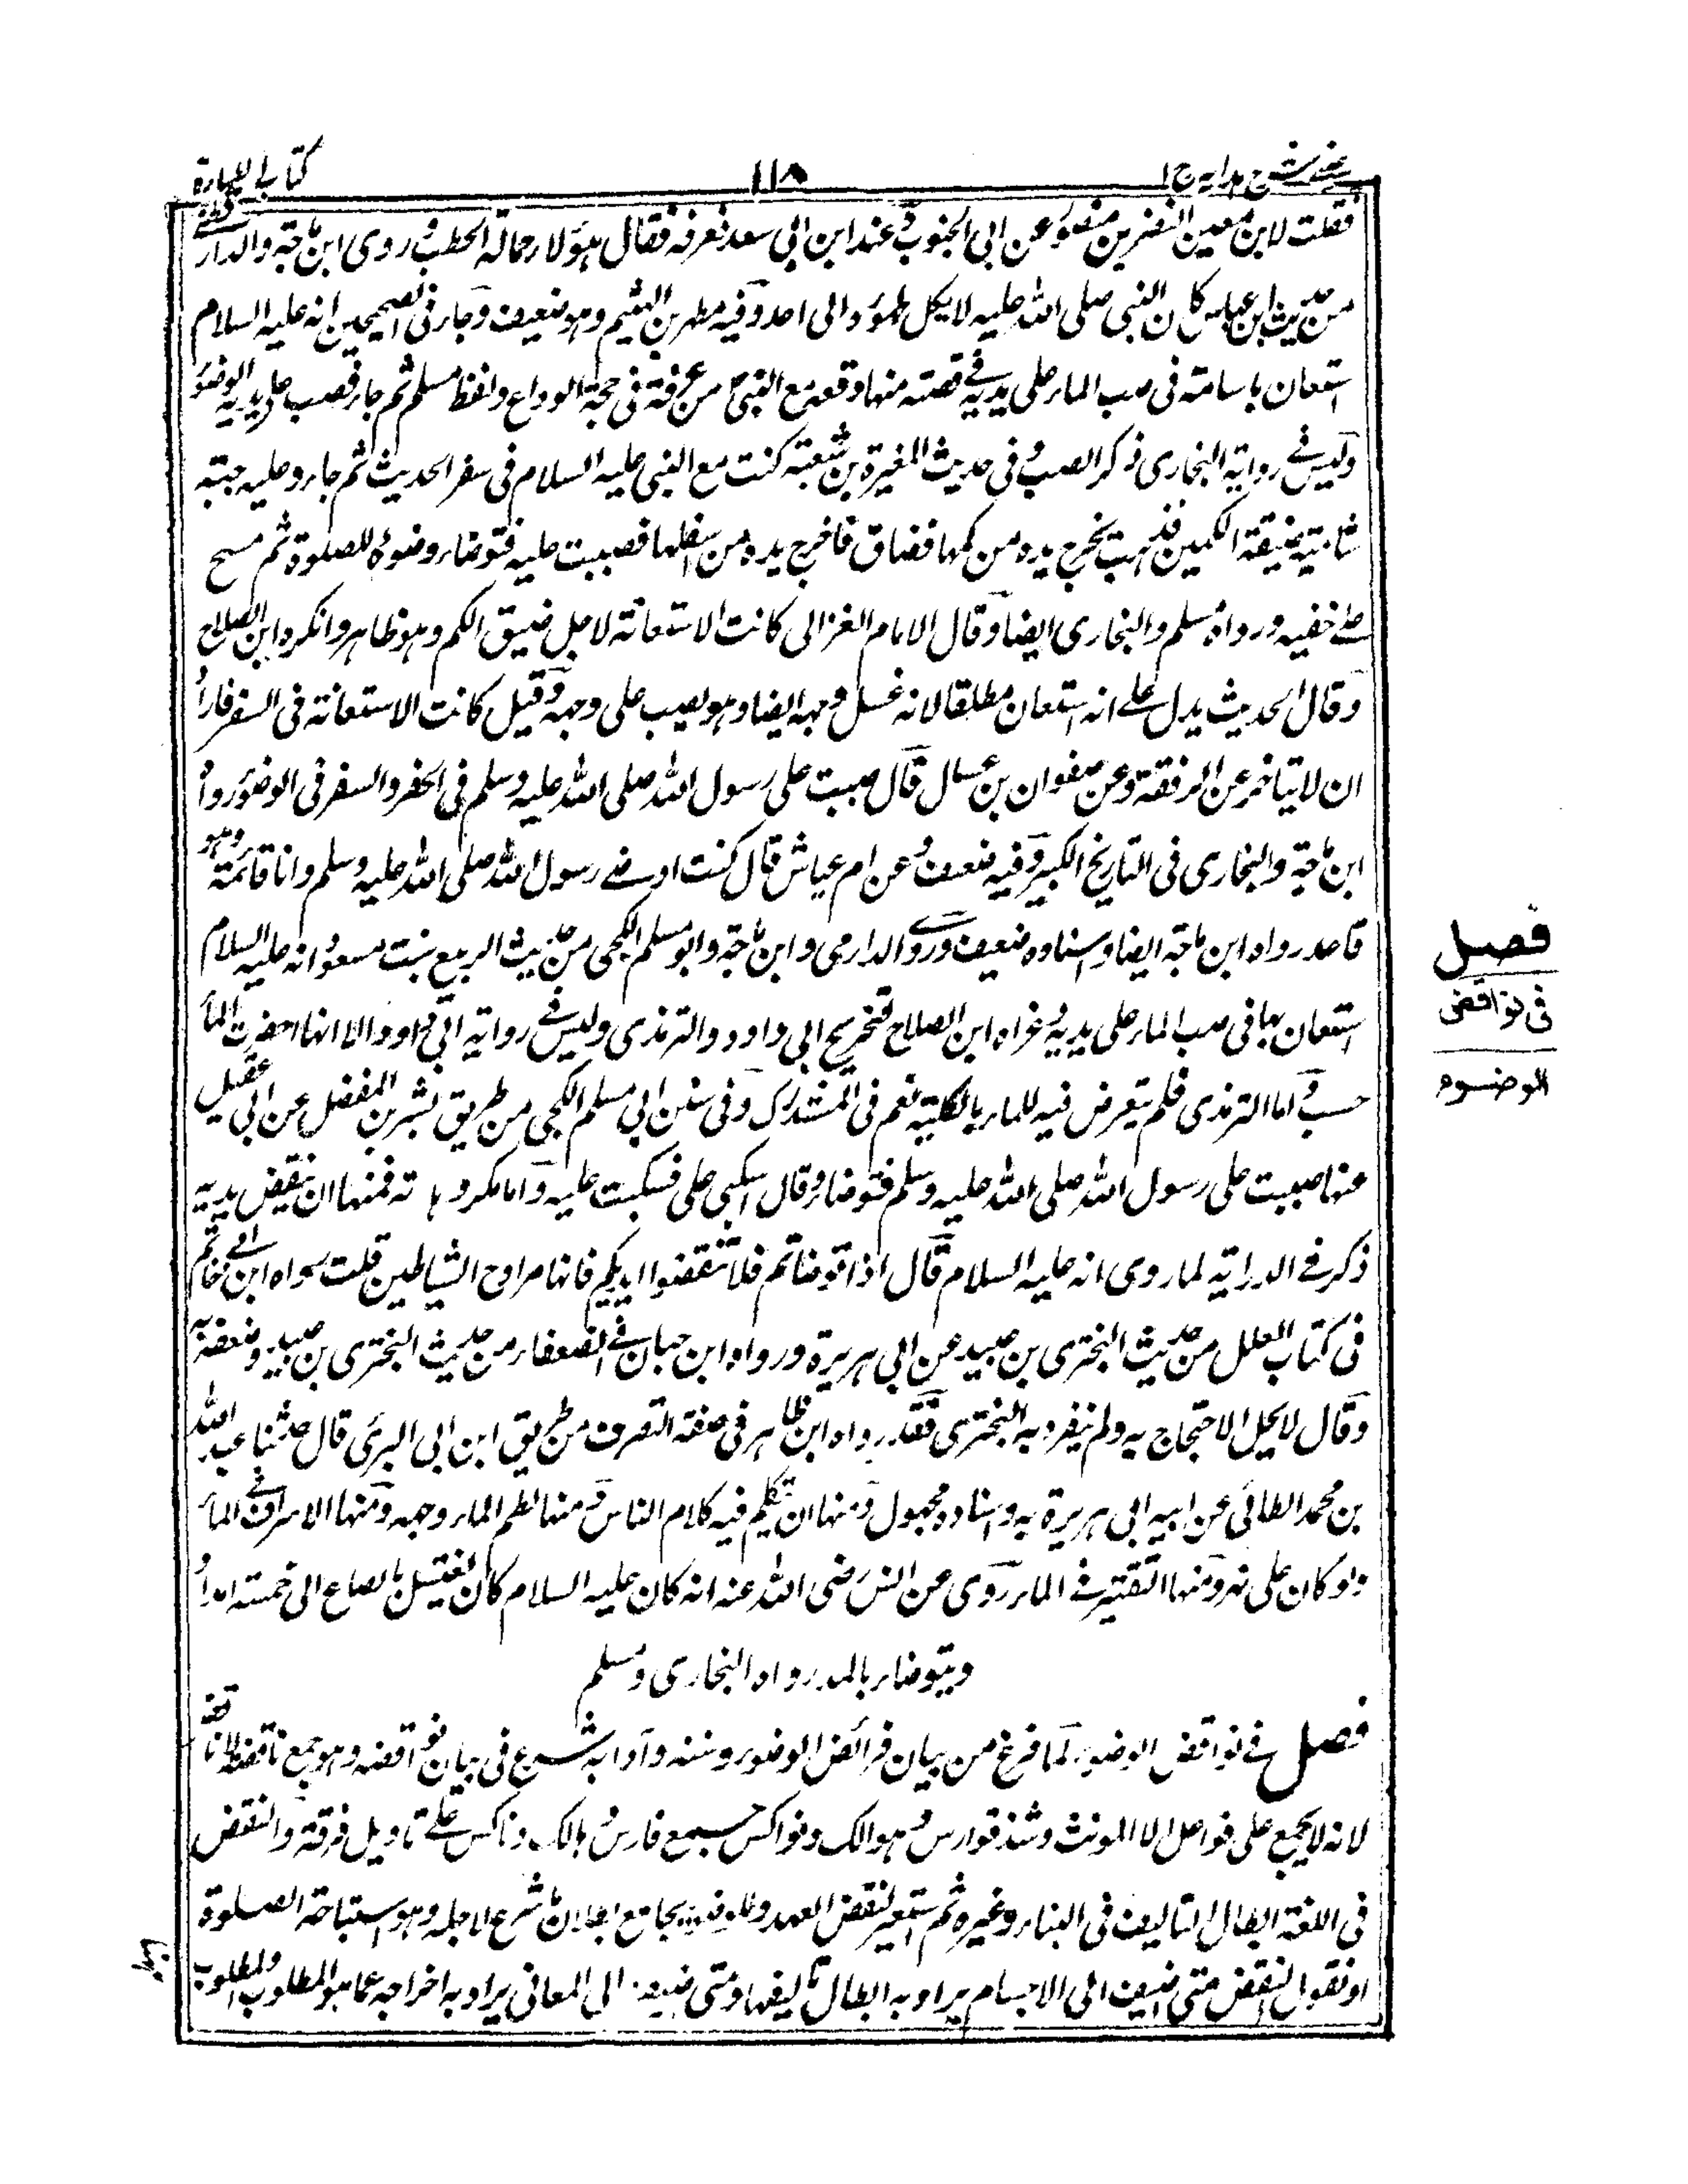 عينى شرح هدايه ج ١
١١٨
كتاب الطهارة
فقلت لابن معين النضر بن منصور عن ابى الجنوب وعند ابن ابى سعد نعرفه فقال هؤلاء حمالة الحطب وروى ابن ماجة والدارقطنى
من حديث ابن عباس كان النبى صلى الله عليه لا يكل طهوره الى احد وفيه مطهر بن الهثيم وهو ضعيف وجاء فى الصحيحين انه عليه السلام
استعان باسامة فى صب الماء على يديه فى قصته منها وقعه مع النبى من عرفة فى حجة الوداع ولفظ مسلم ثم جاء فصب على يديه الوضوء
وليس فى رواية البخارى ذكر الصب وفى حديث المغيرة بن شعبة كنت مع النبى عليه السلام فى سفر الحديث ثم جاء وعليه جبته
شامية ضيقة الكمين فذهبت يخرج يده من كمها فضاق فاخرج يده من اسفلها فصببت عليه فتوضاء وضوءه للصلوة ثم مسح
على خفيه ورواه مسلم والبخارى ايضا وقال الامام الغزالى كانت الاستعانة لاجل ضيق الكم وهو ظاهر وانكره ابن الصلاح
وقال الحديث يدل على انه استعان مطلقا لانه غسل وجهه ايضا وهو يصب على وجهه وقيل كانت الاستعانة فى السفر فاراد
ان لا يتاخر عن الرفقة وعن صفوان بن عسال قال صببت على رسول الله صلى الله عليه وسلم فى الحضر والسفر فى الوضوء رواه
ابن ماجة والبخارى فى التاريخ الكبير وفيه ضعف وعن ام عياش قال كنت اوضى رسول الله صلى الله عليه وسلم وانا قائمة وهو
قاعد رواه ابن ماجة ايضا واسناده ضعيف وروى الدارمى وابن ماجة وابو مسلم الكجى من حديث الربيع بنت مسعود انه عليه السلام
استعان بها فى صب الماء على يديه وعزاه ابن الصلاح لتخريج ابى داود والترمذى وليس فى رواية ابى داود الا انها احضرت الماء
حسب واما الترمذى فلم يتعرض فيه للماء بالكلية نعم فى المستدرك وفى سنن ابى مسلم الكجى من طريق بشر بن المفضل عن ابى عقيل
عنها صببت على رسول الله صلى الله عليه وسلم فتوضاء وقال اسكبى على فسكبت عليه واما مكروهاته فمنها ان ينفض يديه
ذكر فى الدراية لما روى انه عليه السلام قال اذا توضاتم فلا تنفضوا ايديكم فانها مراوح الشياطين قلت رواه ابن ابى حاتم
فى كتاب العلل من حديث البخترى بن عبيد عن ابى هريرة ورواه ابن حبان فى الضعفاء من حديث البخترى بن عبيد وضعفه به
وقال لا يحل الاحتجاج به ولم ينفرد به البخترى فقد رواه ابن طاهر فى صفة التصوف من طريق ابن ابى السرى قال حدثنا عبد الله
بن محمد الطائى عن ابيه ابى هريرة به واسناده مجهول ومنها ان يتكلم فيه كلام الناس ومنها لطم الماء وجهه ومنها الاسراف فى الماء
ولو كان على نهر ومنها التقتير فى الماء روى عن انس رضى الله عنه انه كان عليه السلام كان يغتسل بالصاع الى خمسة امداد
ويتوضاء بالمد رواه البخارى ومسلم
فصل فى نواقض الوضوء لما فرغ من بيان فرائض الوضوء وسننه وآدابه شرع فى بيان نواقضه وهو جمع ناقضة لا ناقض
لانه لا يجمع على فواعل الا المونث وشذ فوارس وهوالك ونواكس جمع فارس وهالك وناكس على تاويل فرقة والنقض
فى اللغة ابطال التاليف فى البناء وغيره ثم استعير لنقض العهد وللوضوء بجامع ابطال ما شرع لاجله وهو استباحة الصلوة
او نقول النقض متى اضيف الى الاجسام يراد به ابطال تاليفها ومتى اضيف الى المعانى يراد به اخراجه عما هو المطلوب والمطلوب
فصل
فى نواقض
الوضوء